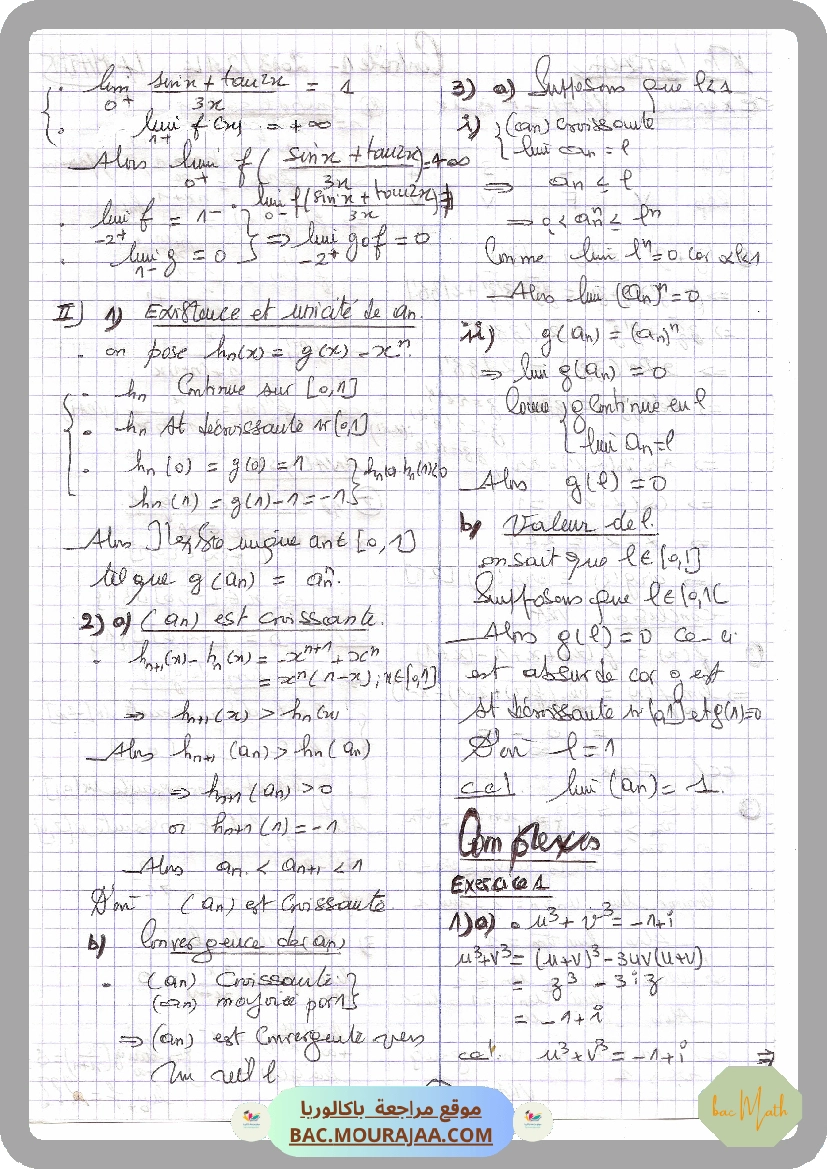 lim sin x + tan 2x / 3x = 1
0+
lim f(x) = +∞
1+
Alors lim f( sin x + tan 2x / 3x ) = +∞
0+
lim f( sin x + tan 2x / 3x )
0-
lim f = 1-
-2+
lim g = 0
1-
=> lim gof = 0
-2+
II) 1) Existence et unicité de an.
. on pose hn(x) = g(x) - x^n.
. hn Continue sur [0,1]
. hn st décroissante sr [0,1]
. hn(0) = g(0) = 1
hn(1) = g(1) - 1 = -1
} hn(0) hn(1) < 0
Alors Il existe unique an ∈ [0,1]
tel que g(an) = an^n.
2) a) (an) est croissante.
. hn+1(x) - hn(x) = -x^n+1 + x^n
= x^n(1-x) ; x ∈ [0,1]
=> hn+1(x) > hn(x)
Alors hn+1(an) > hn(an)
=> hn+1(an) > 0
or hn+1(1) = -1
Alors an < an+1 < 1
D'où (an) est Croissante.
b) Convergence de (an)
. (an) Croissante
(an) majorée par 1
=> (an) est Convergente vers
Un réel l
3) a) Supposons que l<1
i) (an) croissante
lim an = l
=> an ≤ l
=> 0 < an^n ≤ l^n
Comme lim l^n = 0 car l<1
Alors lim (an)^n = 0
ii) g(an) = (an)^n
=> lim g(an) = 0
Comme g Continue en l
lim an = l
Alors g(l) = 0
b) Valeur de l.
on sait que l ∈ [0,1]
Supposons que l ∈ [0,1[
Alors g(l) = 0 ce-ci
est absurde car g est
st décroissante sr [0,1] et g(1)=0
D'où l = 1
ccl lim (an) = 1.
Complexes
Exercice 1
1) a) . u³ + v³ = -1+i
u³+v³ = (u+v)³ - 3uv(u+v)
= z³ - 3iz
= -1+i
ccl. u³+v³ = -1+i
=>
موقع مراجعة باكالوريا
BAC.MOURAJAA.COM
bac Math